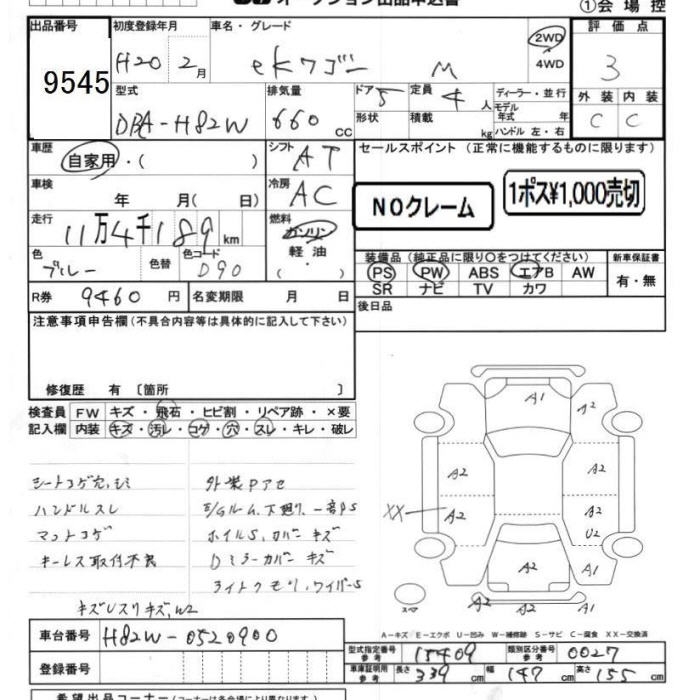 オークション出品申込書
①会場控
出品番号 初度登録年月 車名・グレード 評価点
9545 H20 2月 eKワゴン M 2WD 4WD 3
型式 排気量 ドア 5 定員 4人 ディーラー・並行 外装 内装
DBA-H82W 660cc 形状 積載 kg モデル年式 年 ハンドル 左・右 C C
車歴 自家用・( ) シフト AT セールスポイント(正常に機能するものに限ります)
車検 年 月( 日) 冷房 AC NOクレーム 1ポス¥1,000売切
走行 11万4千189km 燃料 ガソリン 軽油 ( )
色 ブルー 色替 色コード D90
装備品(純正品に限り〇をつけてください) 新車保証書
PS PW ABS エアB AW 有・無
SR ナビ TV カワ
R券 9460円 名変期限 月 日 後日品
注意事項申告欄(不具合内容等は具体的に記入して下さい)
修復歴 有 〔箇所 〕
検査員記入欄 FW キズ・飛石・ヒビ割・リペア跡・×要
内装 キズ・汚レ・コゲ・穴・スレ・キレ・破レ
シートコゲ穴、シミ
ハンドルスレ
マットコゲ
キーレス取付不良
外装Pアセ
E/Gルーム、下廻り、一部PS
ホイルS、カバーキズ
Dミラーカバーキズ
ライトクモリ、ワイパーS
A1 A2
A2 A2
XX A2 A2
U2
A2 A1
スペア
A-キズ E-エクボ U-凹み W-補修跡 S-サビ C-腐食 XX-交換済
車台番号 H82W-0520900
登録番号
型式指定番号 参考 15409 類別区分番号 参考 0027
車庫証明用 参考 長さ 339cm 幅 147cm 高さ 155cm
希望出品コーナー(コーナーは各会場により異なります)